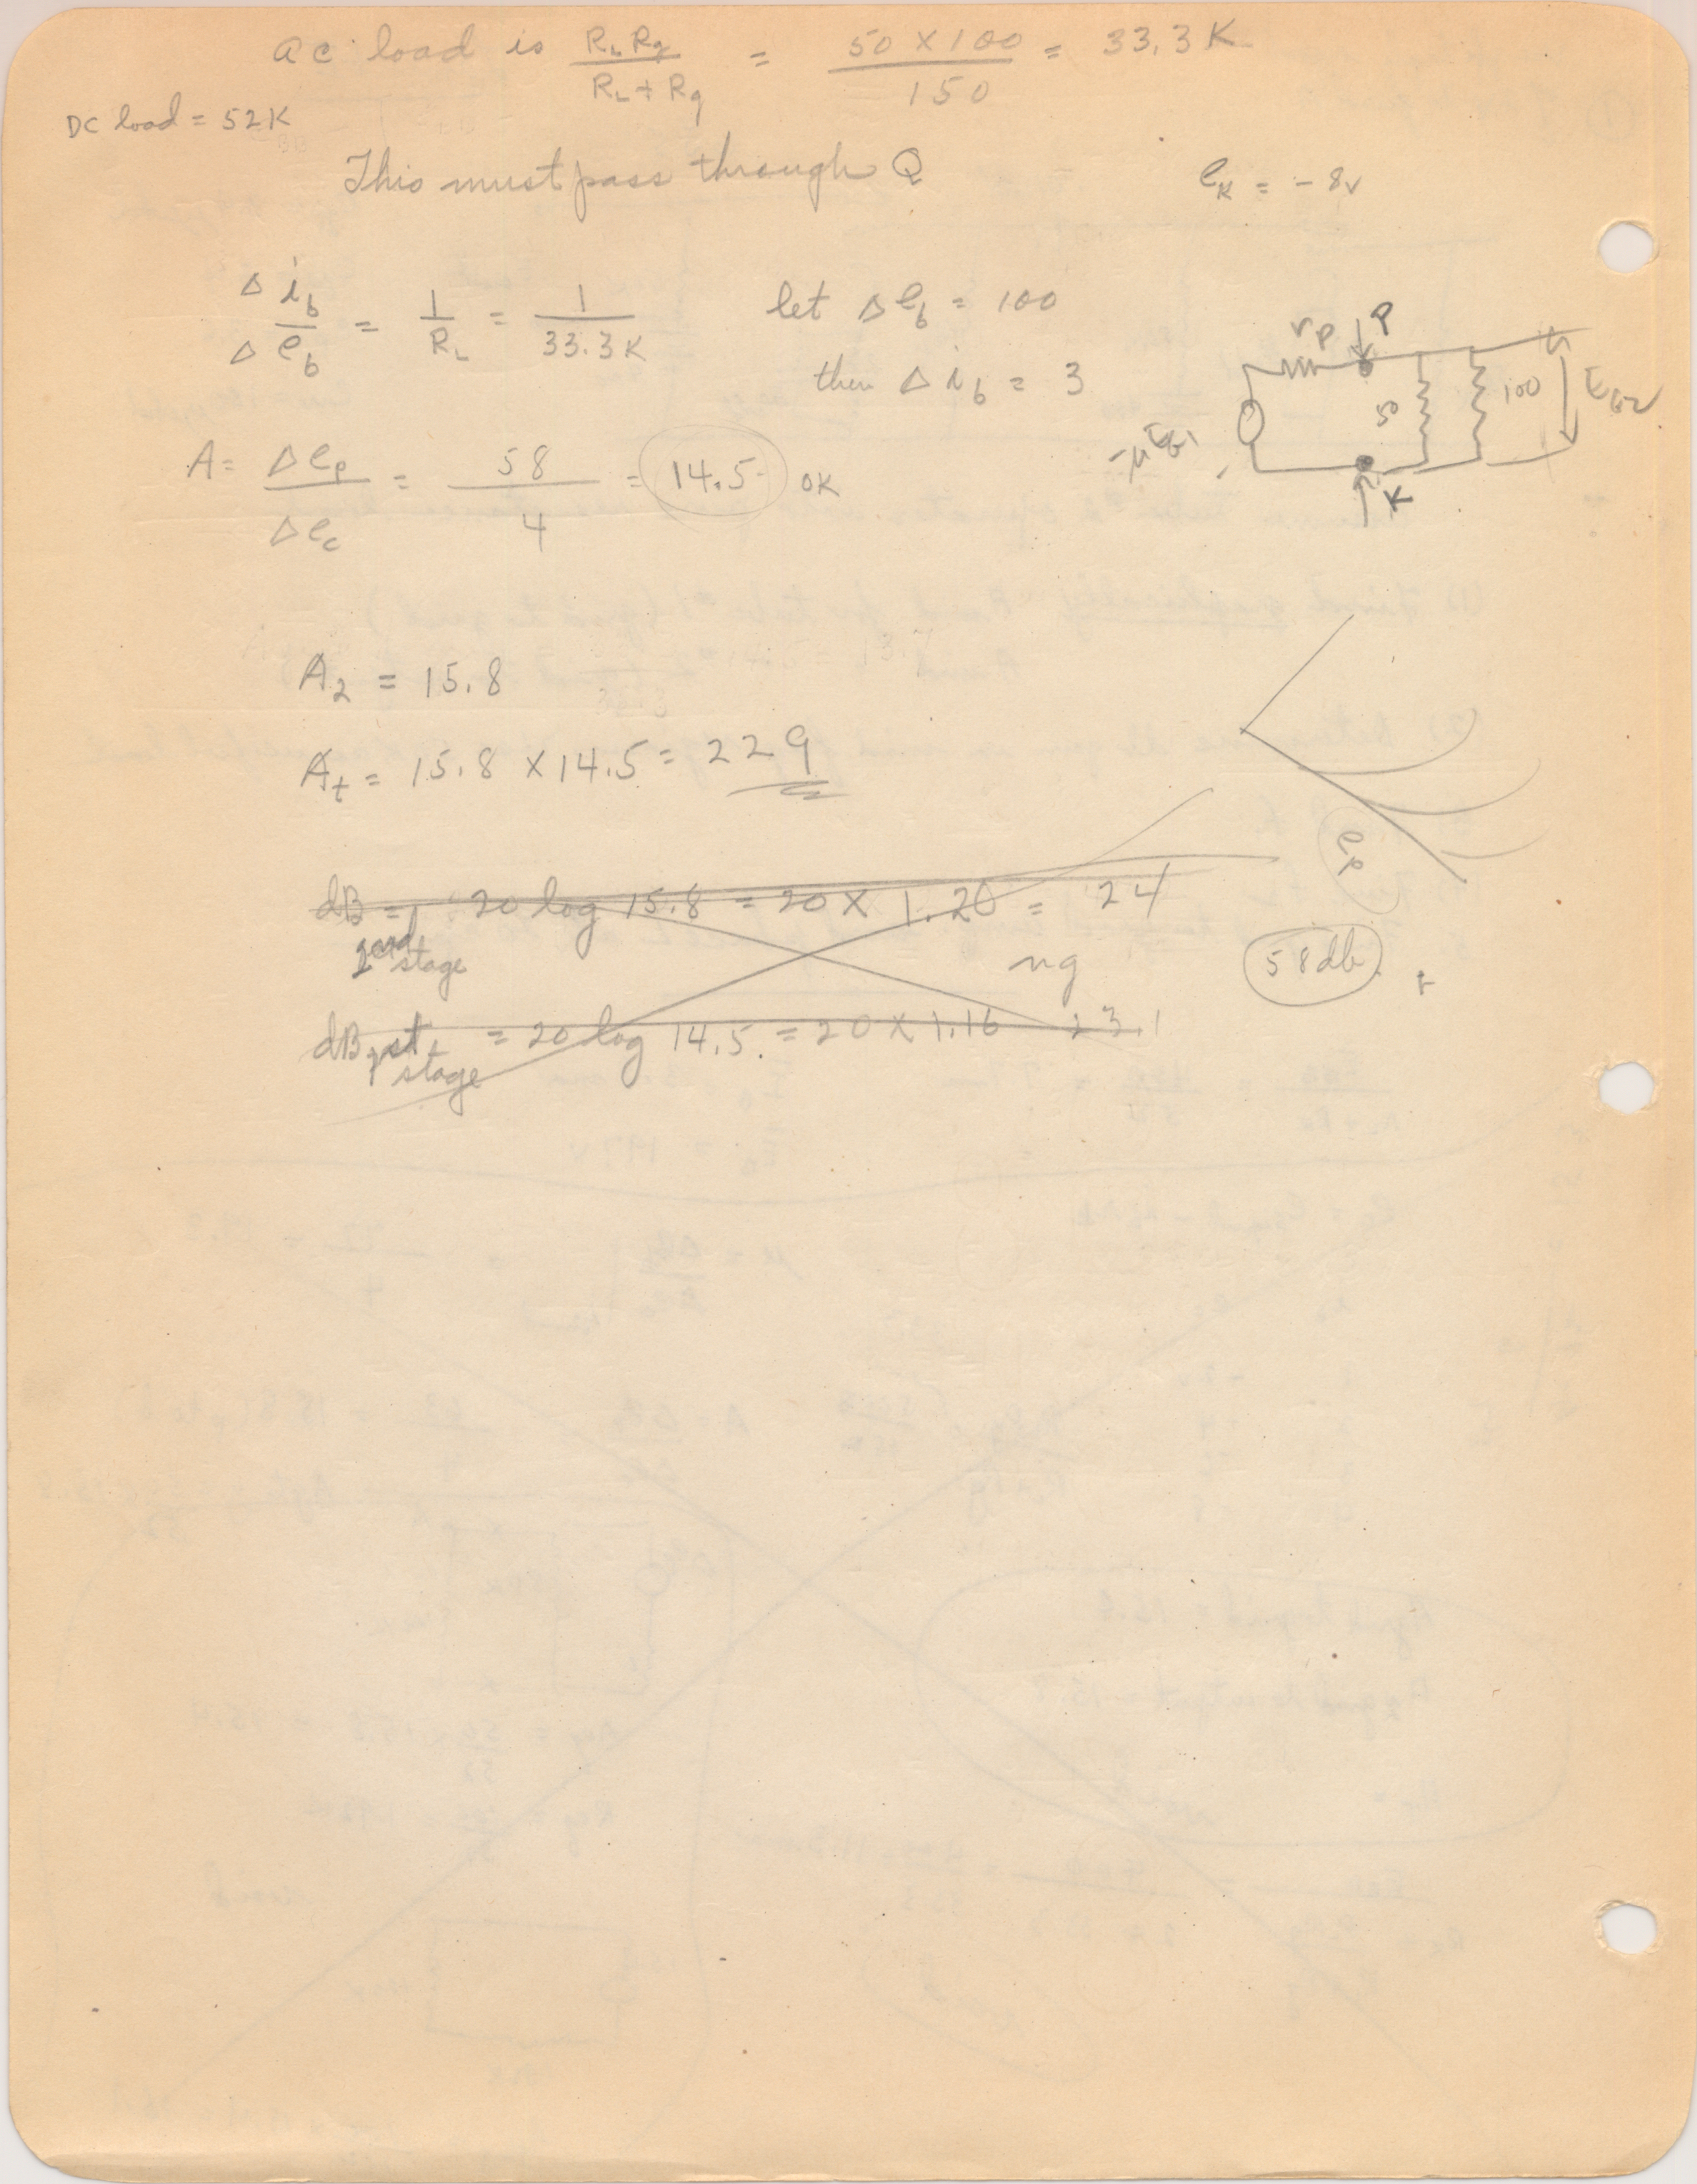 ac load is R_L R_g / R_L + R_g = 50 X 100 / 150 = 33.3 K
DC load = 52K
This must pass through Q
e_K = - 8v
Δ i_b / Δ e_b = 1 / R_L = 1 / 33.3 K
let Δ e_b = 100
then Δ i_b = 3
r_p P
50 100
K
A = Δ e_p / Δ e_c = 58 / 4 = 14.5 OK
A_2 = 15.8
A_t = 15.8 X 14.5 = 229
e_p
dB = 20 log 15.8 = 20 X 1.20 = 24
2nd stage
ng
58 db
dB 1st stage = 20 log 14.5 = 20 X 1.16 23.1